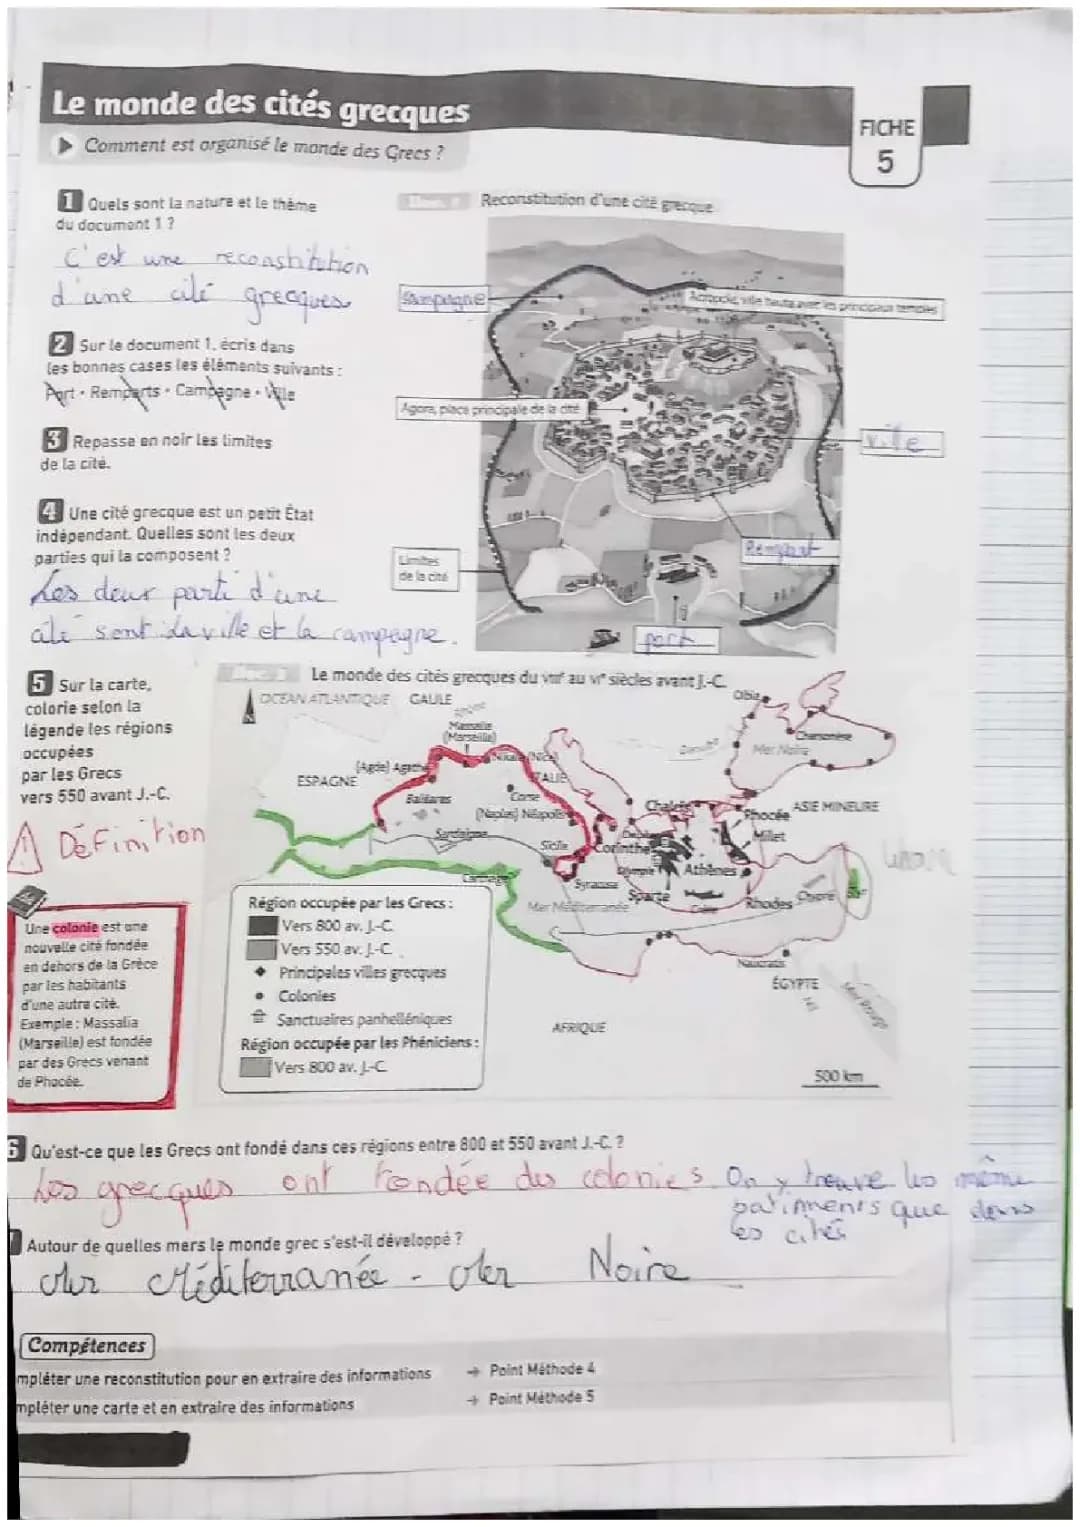 Le monde des cités grecques
Comment est organisé le monde des Grecs ?
FICHE
5
1 Quels sont la nature et le thème
du document 1 ?
C'est une reconstitution
d'une cité grecques
2 Sur le document 1, écris dans
les bonnes cases les éléments suivants :
Port • Remparts • Campagne • Ville
3 Repasse en noir les limites
de la cité.
4 Une cité grecque est un petit État
indépendant. Quelles sont les deux
parties qui la composent ?
Les deux parti d'une
cité sont la ville et la campagne.
Reconstitution d'une cité grecque
Campagne
Acropole, ville haute avec les principaux temples
Agora, place principale de la cité
ville
Rempart
Limites
de la cité
port
5 Sur la carte,
colorie selon la
légende les régions
occupées
par les Grecs
vers 550 avant J.-C.
Définition
Une colonie est une
nouvelle cité fondée
en dehors de la Grèce
par les habitants
d'une autre cité.
Exemple : Massalia
(Marseille) est fondée
par des Grecs venant
de Phocée.
Le monde des cités grecques du VIIIe au VIe siècles avant J.-C.
OCÉAN ATLANTIQUE
GAULE
Rhône
Massalia
(Marseille)
(Agde) Agathé
Nikaia (Nice)
ITALIE
ESPAGNE
Baléares
Corse
(Naples) Néapolis
Sardaigne
Sicile
Carthage
Syracuse
Mer Méditerranée
Olbia
Danube
Mer Noire
Chersonèse
Chalcis
Phocée
ASIE MINEURE
Delphes
Milet
Corinthe
Olympie
Athènes
Sparte
Crète
Rhodes
Chypre
Tyr
Liban
Naucratis
ÉGYPTE
Nil
Mer Rouge
AFRIQUE
500 km
Région occupée par les Grecs :
Vers 800 av. J.-C.
Vers 550 av. J.-C.
Principales villes grecques
Colonies
Sanctuaires panhelléniques
Région occupée par les Phéniciens :
Vers 800 av. J.-C.
6 Qu'est-ce que les Grecs ont fondé dans ces régions entre 800 et 550 avant J.-C. ?
Les grecques ont fondée des colonies. On y trouve les même
batiments que dans
les cités
Autour de quelles mers le monde grec s'est-il développé ?
Mer Méditerranée - Mer Noire
Compétences
mpléter une reconstitution pour en extraire des informations → Point Méthode 4
mpléter une carte et en extraire des informations → Point Méthode 5